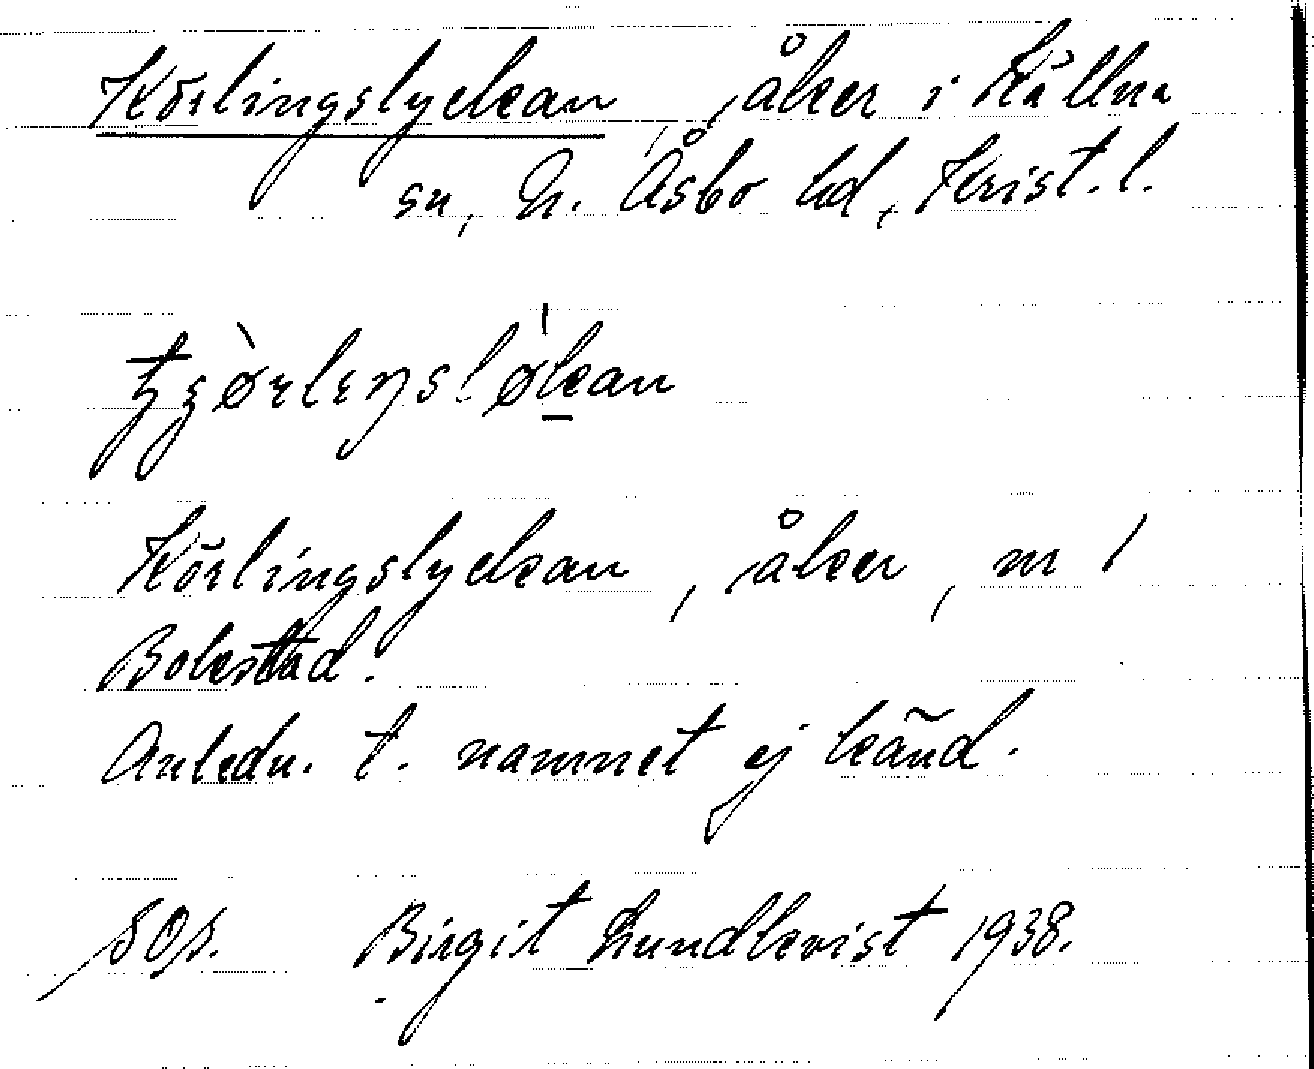 Körlingslyckan, åker i Källna
sn, N. Åsbo hd, Krist. l.
Körlingslyckan, åker, nr 1
Bokestad.
Anledn. t. namnet ej känd.
SOS. Birgit Lundkvist 1938.